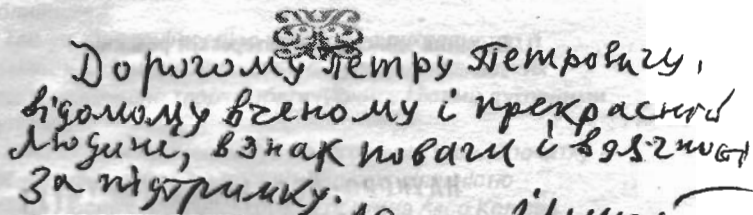 Дорогому Петру Петровичу,
відомому вченому і прекрасній
людині, в знак поваги і вдячності
за підтримку.